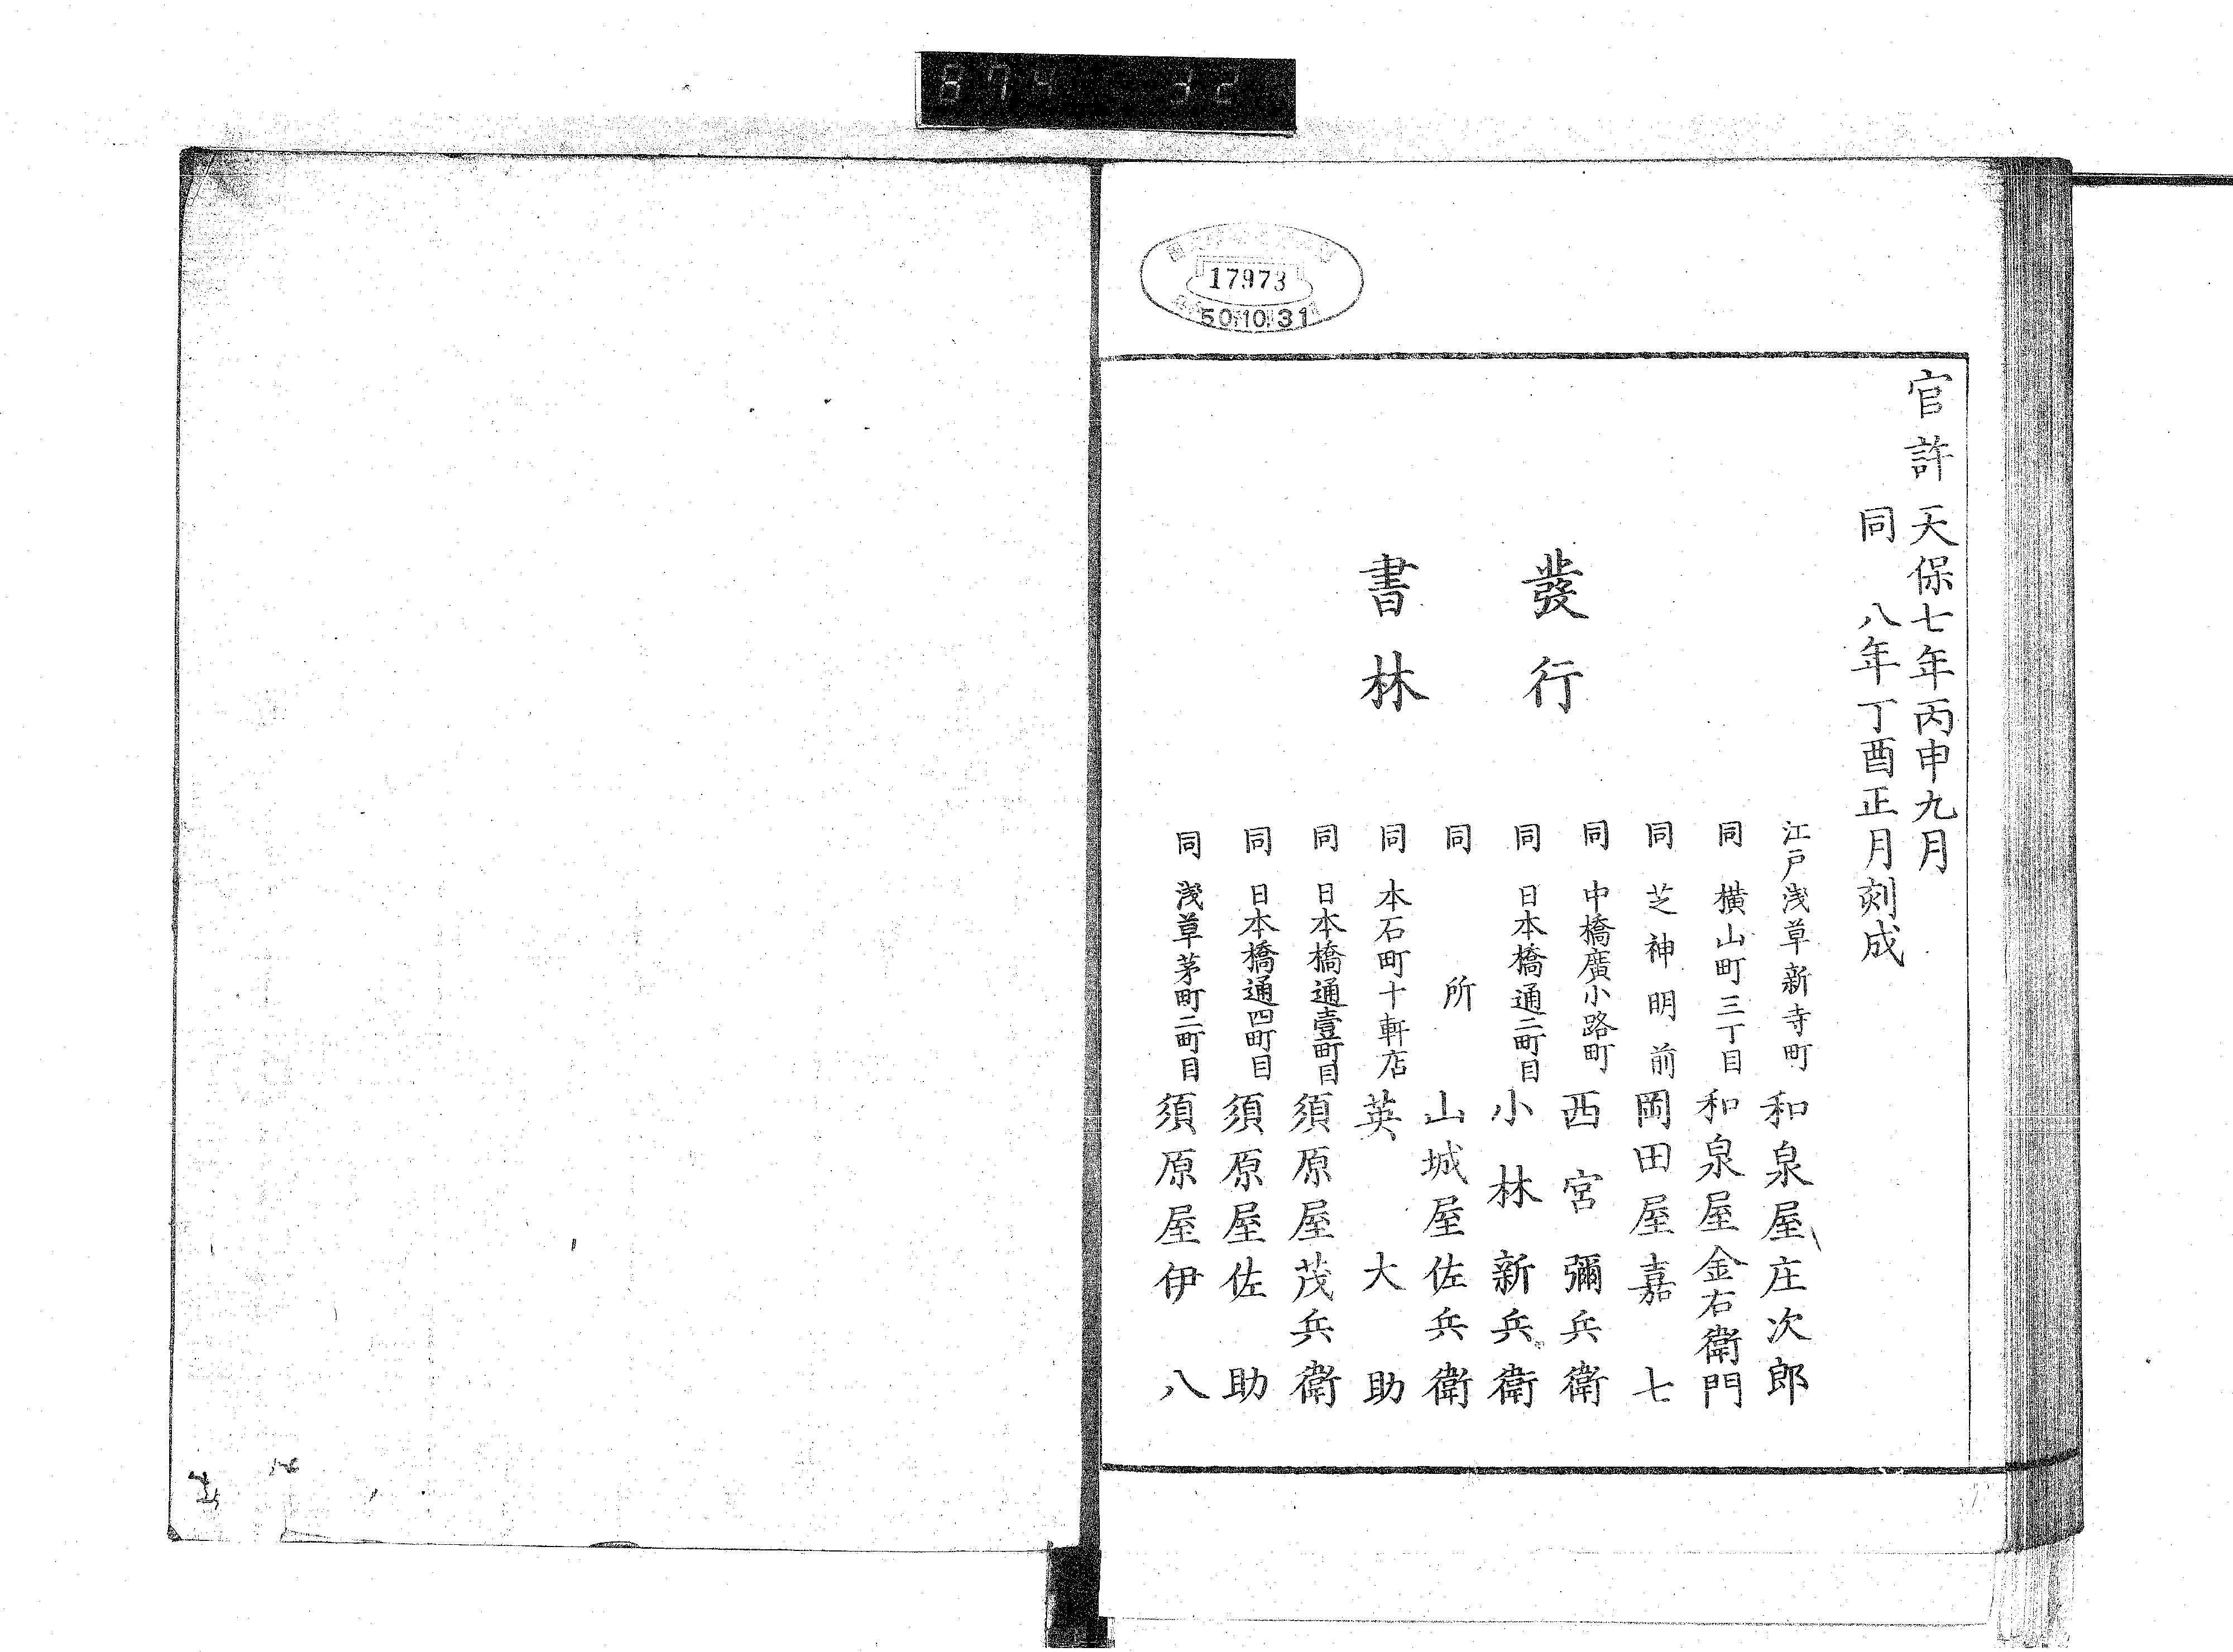 官許 天保七年丙申九月
同 八年丁酉正月刻成
發行
書林
江戸浅草新寺町 和泉屋庄次郎
同 横山町三丁目 和泉屋金右衛門
同 芝神明前 岡田屋嘉七
同 中橋廣小路町 西宮彌兵衛
同 日本橋通二町目 小林新兵衛
同 所 山城屋佐兵衛
同 本石町十軒店 英大助
同 日本橋通壹町目 須原屋茂兵衛
同 日本橋通四町目 須原屋佐助
同 浅草茅町二町目 須原屋伊八
17973
50.10.31
874